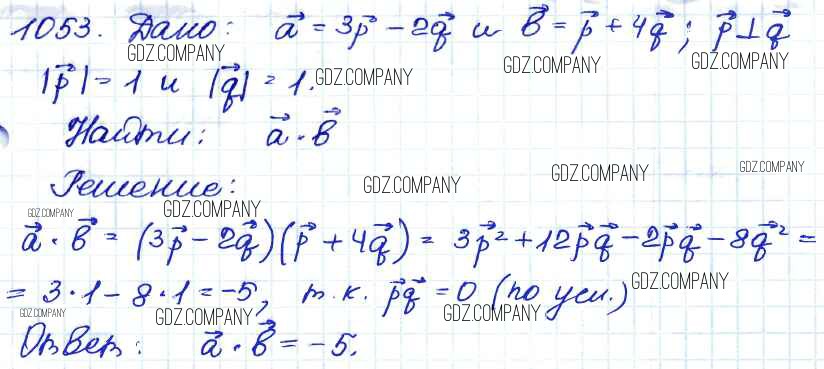 1053. Дано: a⃗ = 3p⃗ − 2q⃗ и b⃗ = p⃗ + 4q⃗; p⃗ ⊥ q⃗
GDZ.COMPANY GDZ.COMPANY GDZ.COMPANY
|p⃗| = 1 и |q⃗| = 1. GDZ.COMPANY
Найти: a⃗ · b⃗
Решение: GDZ.COMPANY GDZ.COMPANY
GDZ.COMPANY GDZ.COMPANY
a⃗ · b⃗ = (3p⃗ − 2q⃗)(p⃗ + 4q⃗) = 3p⃗² + 12p⃗q⃗ − 2p⃗q⃗ − 8q⃗² =
= 3 · 1 − 8 · 1 = −5, т.к. p⃗q⃗ = 0 (по усл.) GDZ.COMPANY
GDZ.COMPANY GDZ.COMPANY GDZ.COMPANY
Ответ: a⃗ · b⃗ = −5.